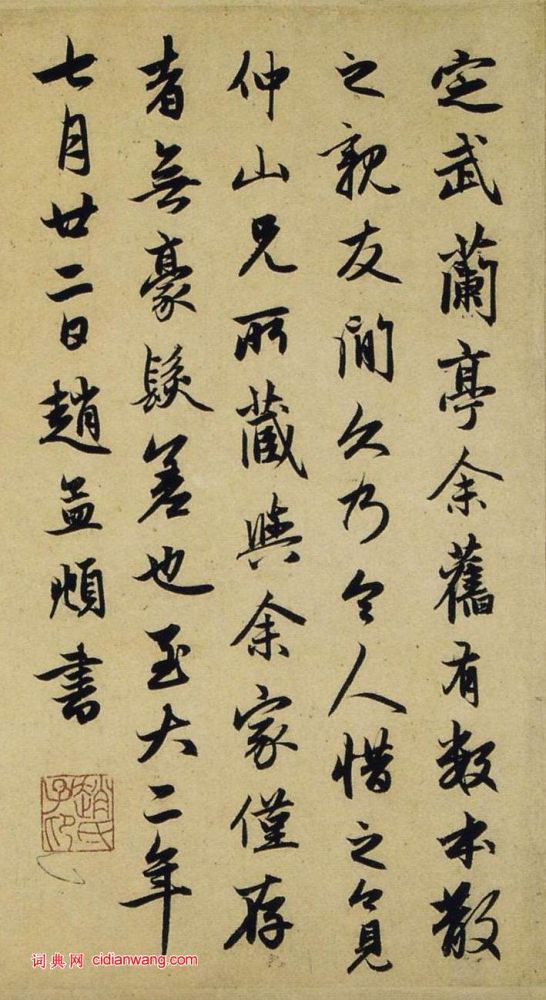 定武蘭亭余舊有数本散
之親友間久乃令人惜之今見
仲山兄所藏與余家僅存
者無豪髮差也至大二年
七月廿二日趙孟頫書
趙氏子昂
词典网 cidianwang.com